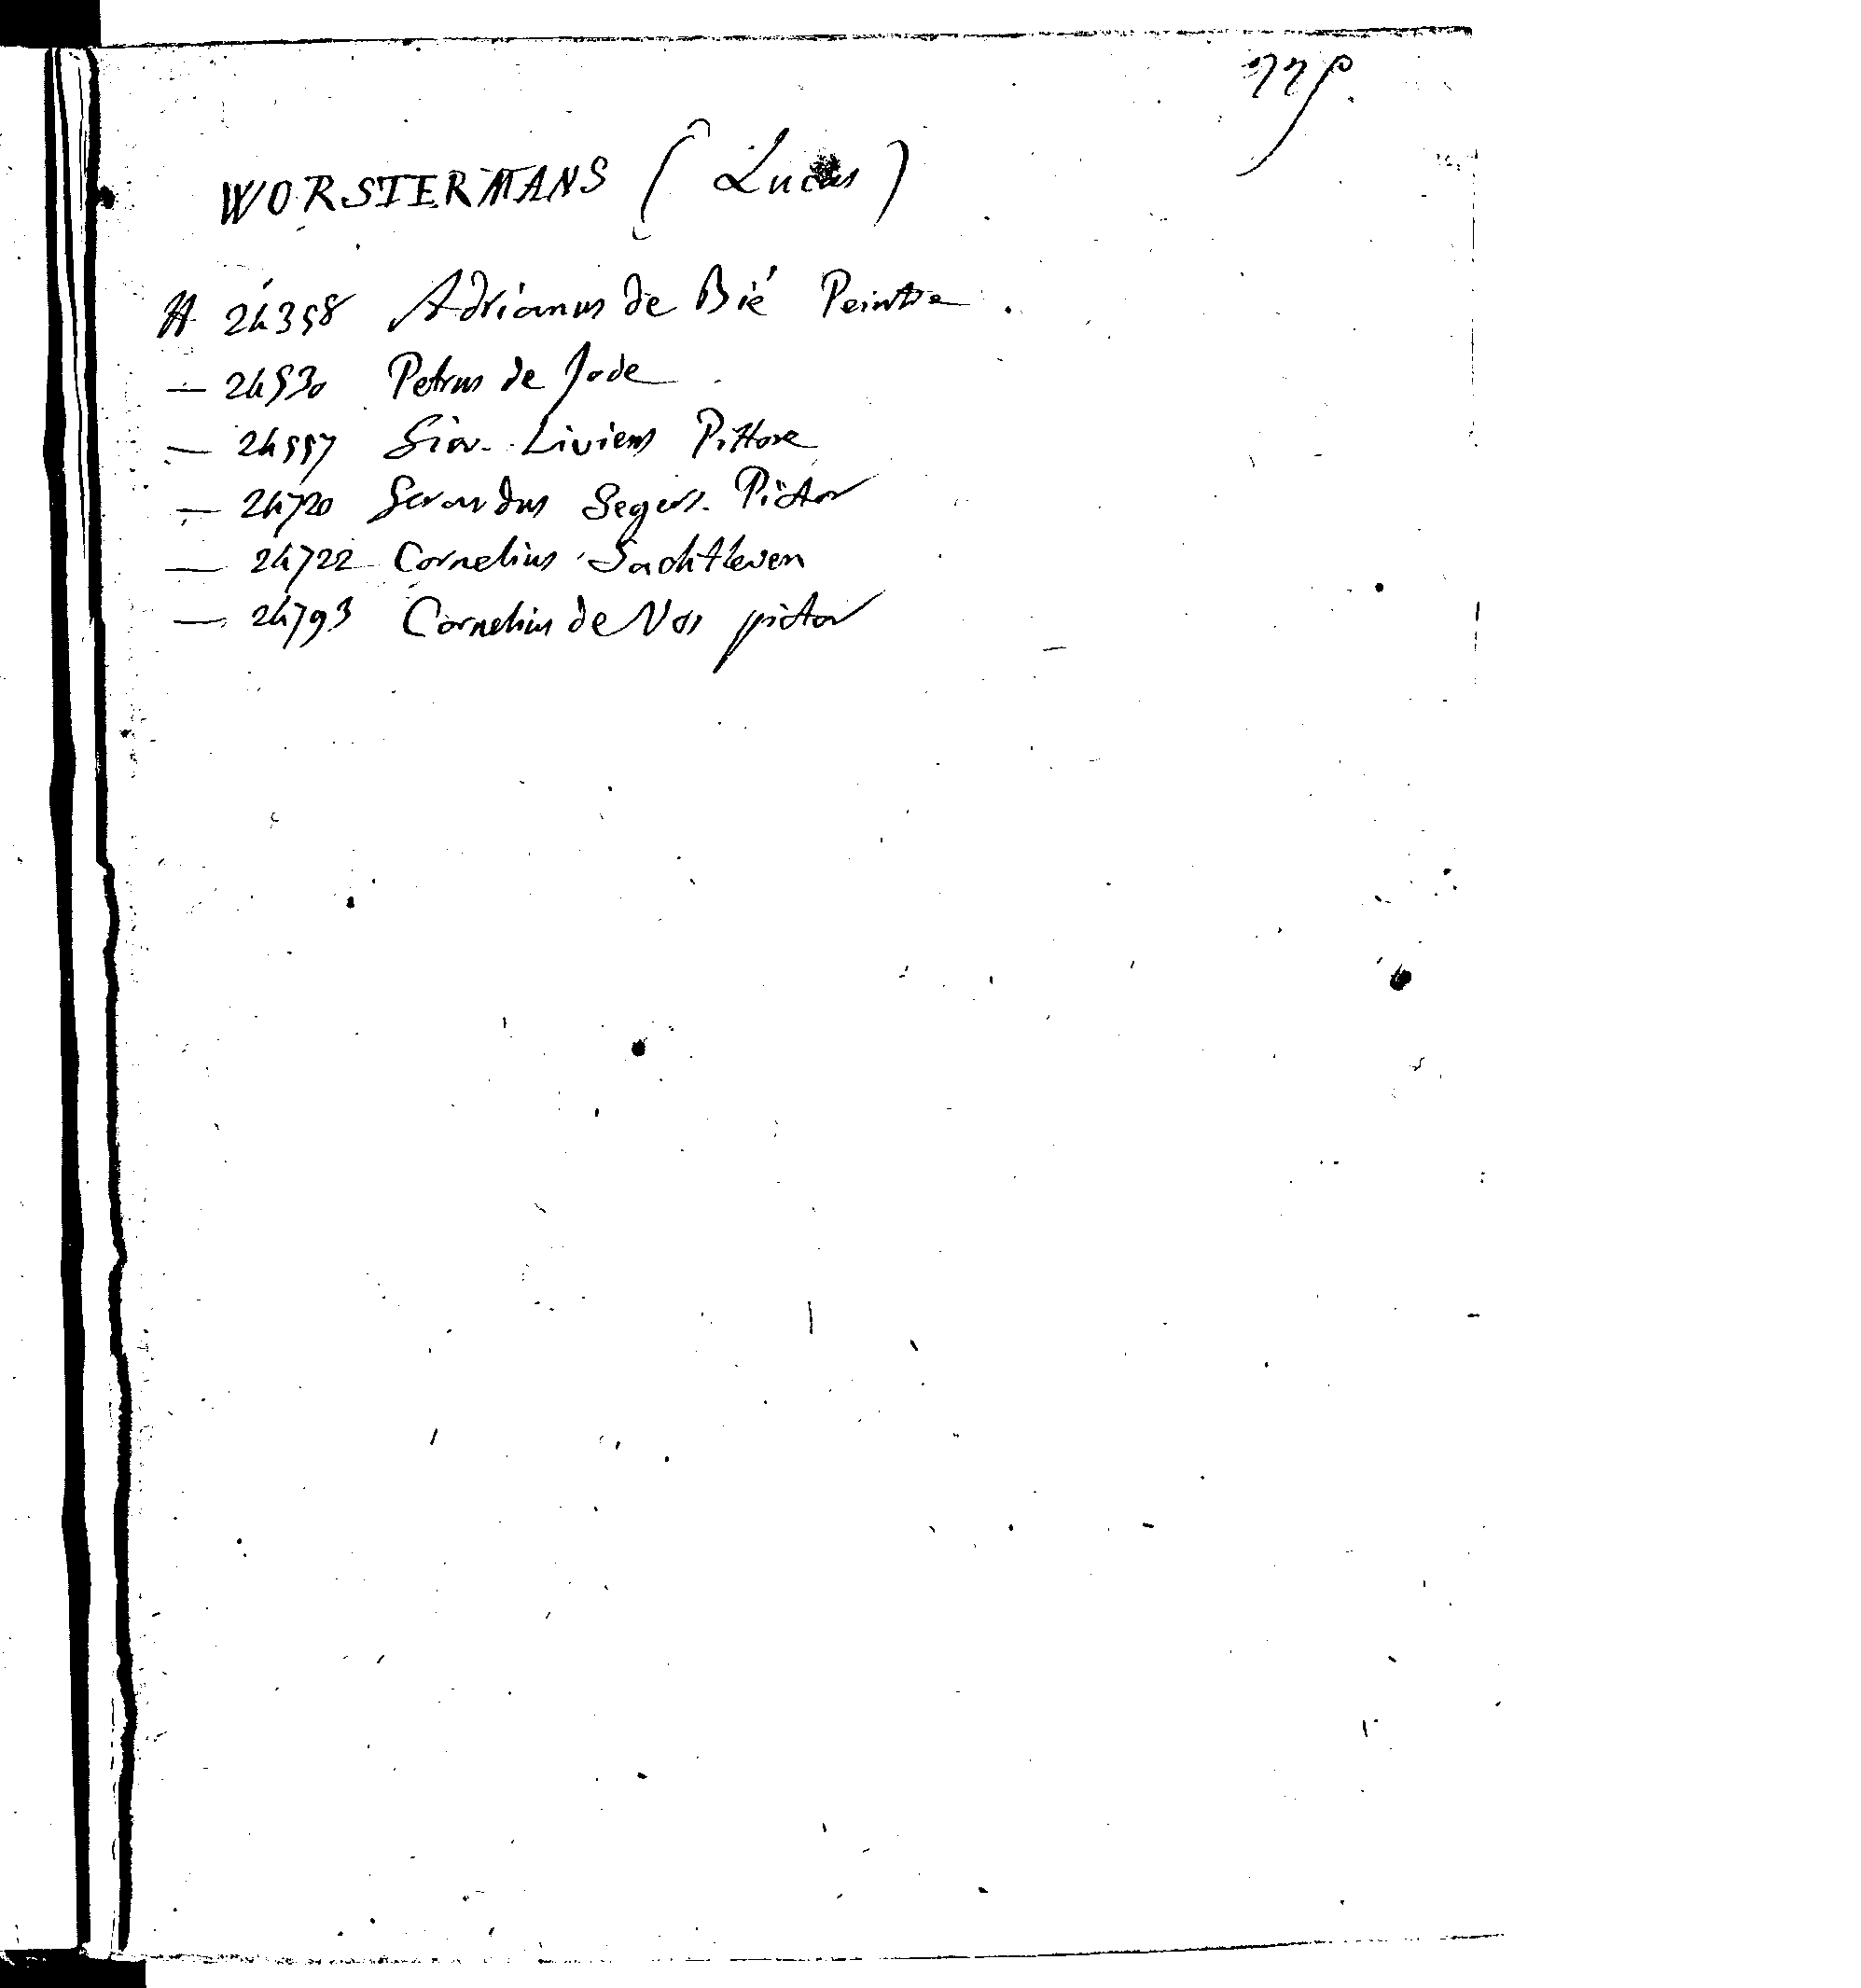 779.
WORSTERMANS (Lucas)
A 24358 Adrianus de Bié Peintre.
— 24530 Petrus de Jode
— 24557 Giov. Liviens Pittore
— 24720 Gerardus Segers. Pictor
— 24722 Cornelius Sachtleven
— 24793 Cornelius de Vos pictor